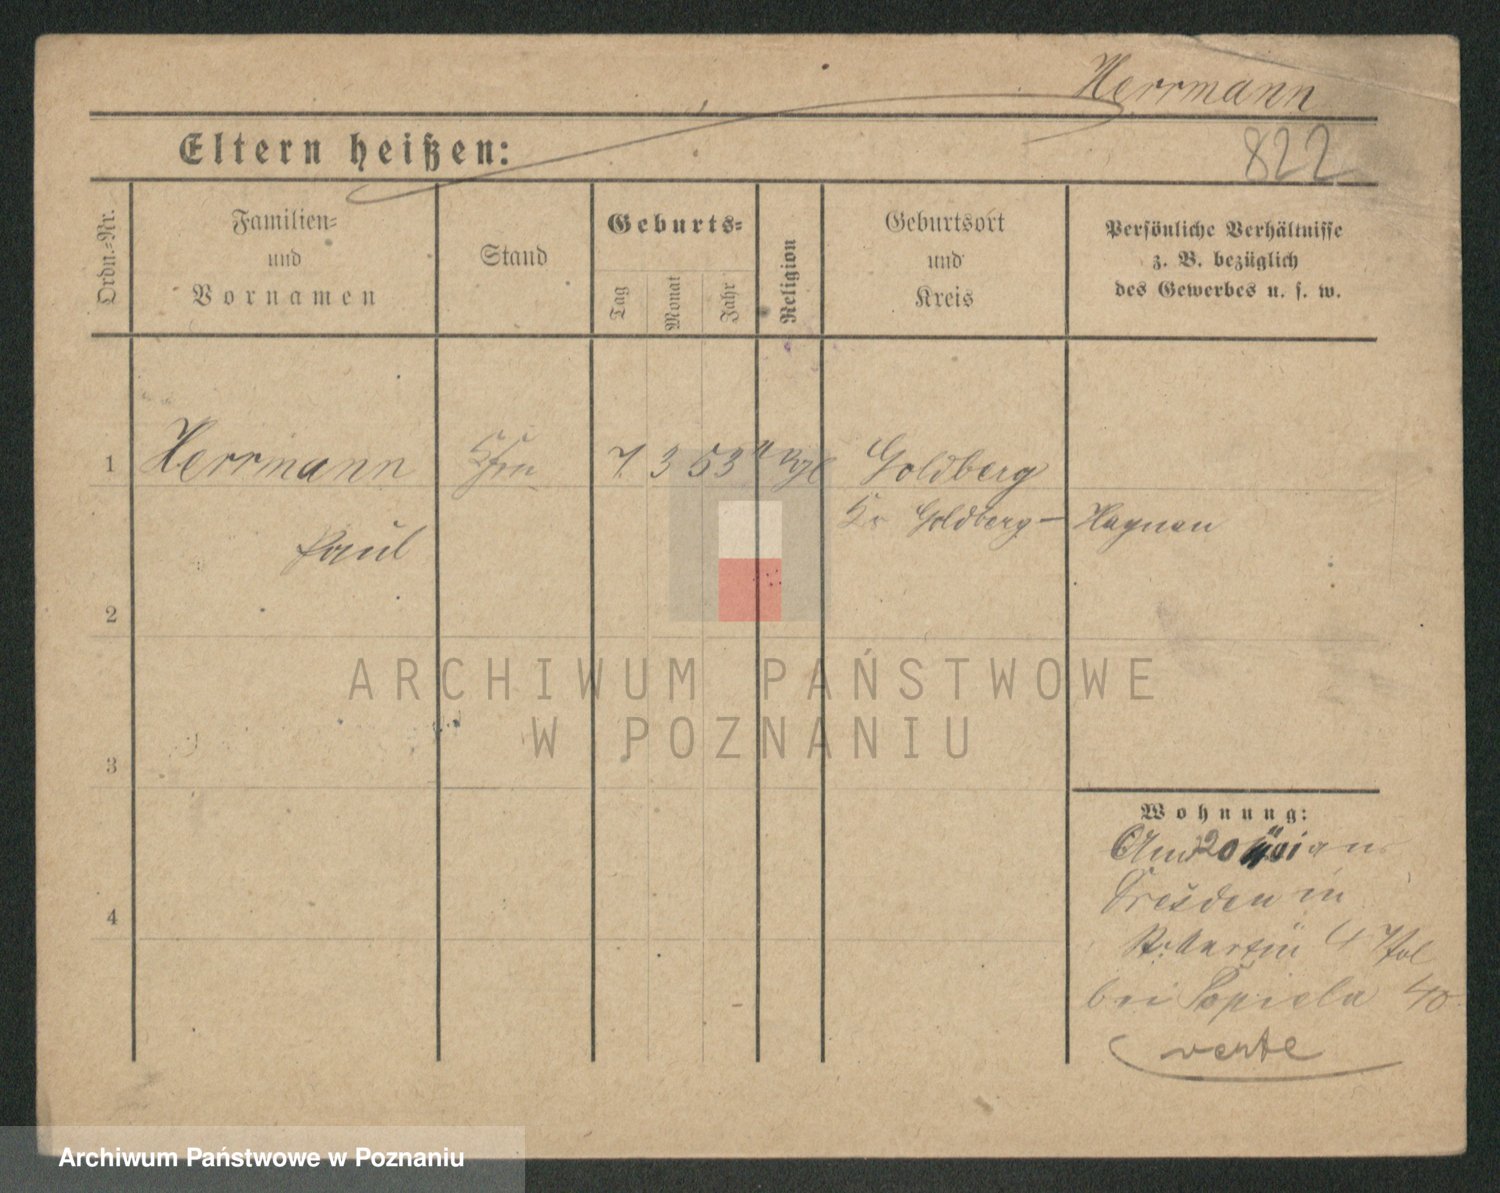 Herrmann
822
Eltern heißen:
Ordn.-Nr.
Familien-
und
Vornamen
Stand
Geburts-
Tag
Monat
Jahr
Religion
Geburtsort
und
Kreis
Persönliche Verhältnisse
z. B. bezüglich
des Gewerbes u. s. w.
1 Herrmann 7. 3 53 Goldberg
Kr Goldberg - Haynau
Paul
2
ARCHIWUM PAŃSTWOWE
W POZNANIU
3
Wohnung:
20
Dresden in
St. Martin 47
4
bei Popiela 40
verte
Archiwum Państwowe w Poznaniu